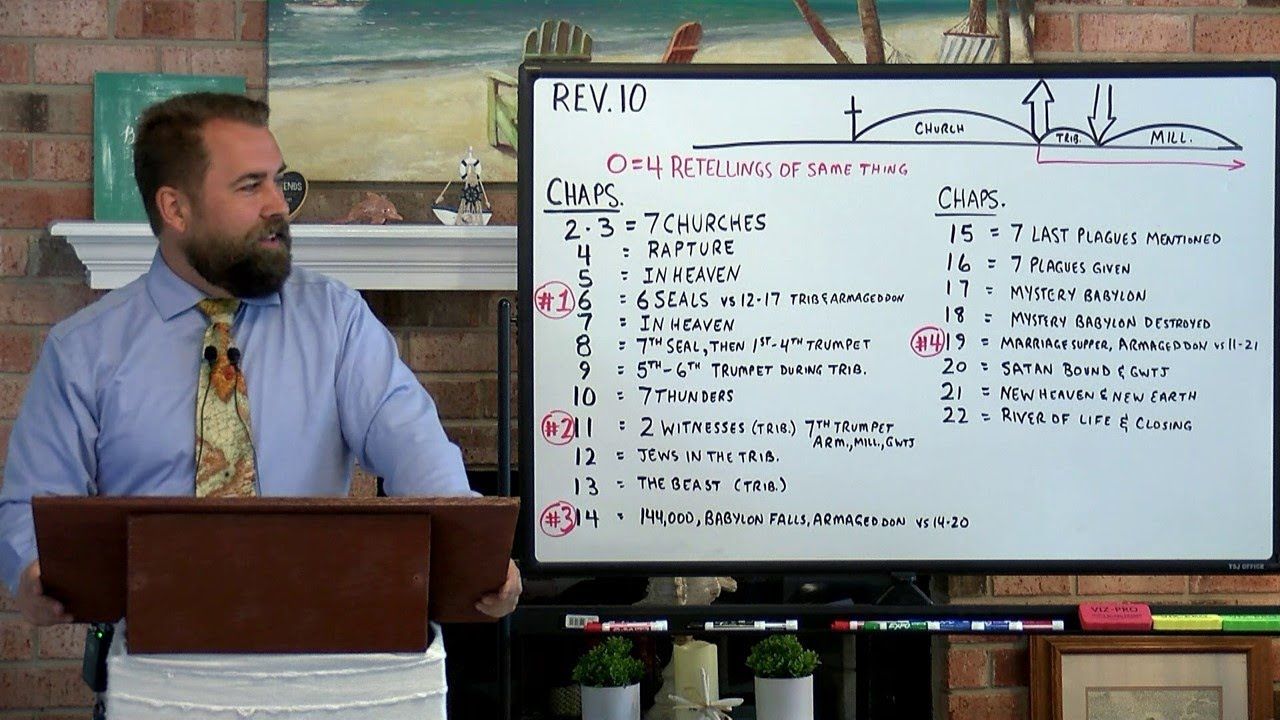 REV.10
CHURCH
TRIB.
MILL.
O=4 RETELLINGS OF SAME THING
CHAPS.
2·3 = 7 CHURCHES
4 = RAPTURE
5 = IN HEAVEN
#1 6 = 6 SEALS VS 12-17 TRIB & ARMAGEDDON
7 = IN HEAVEN
8 = 7TH SEAL, THEN 1ST-4TH TRUMPET
9 = 5TH-6TH TRUMPET DURING TRIB.
10 = 7 THUNDERS
#2 11 = 2 WITNESSES (TRIB.) 7TH TRUMPET
ARM., MILL, GWTJ
12 = JEWS IN THE TRIB.
13 = THE BEAST (TRIB.)
#3 14 = 144,000, BABYLON FALLS, ARMAGEDDON VS 14-20
CHAPS.
15 = 7 LAST PLAGUES MENTIONED
16 = 7 PLAGUES GIVEN
17 = MYSTERY BABYLON
18 = MYSTERY BABYLON DESTROYED
#4 19 = MARRIAGE SUPPER, ARMAGEDDON VS 11-21
20 = SATAN BOUND & GWTJ
21 = NEW HEAVEN & NEW EARTH
22 = RIVER OF LIFE & CLOSING
TSJ OFFICE
VIZ-PRO
EXPO